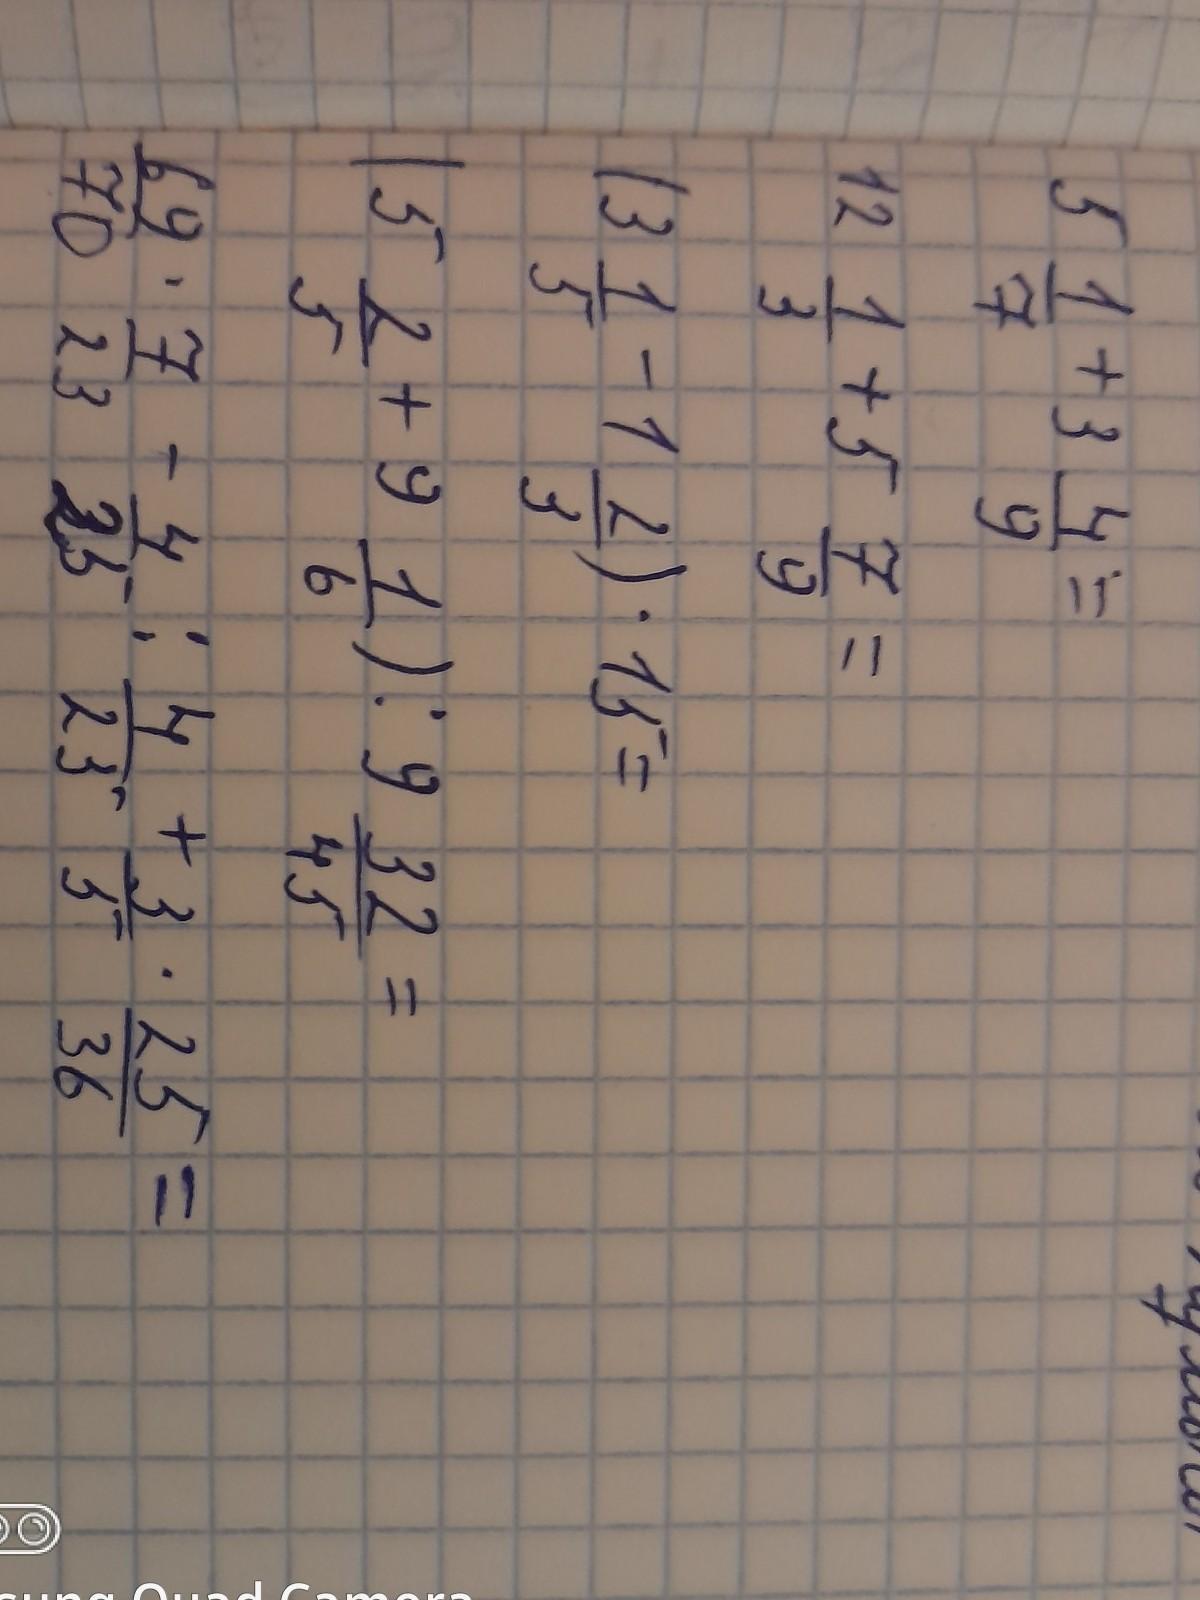 5 1/7 + 3 4/9 =
12 1/3 + 5 7/9 =
(3 1/5 - 1 2/3) · 15 =
(5 2/5 + 9 1/6) : 9 32/45 =
69/70 · 7/23 - 4/25 : 4/23 + 3/5 · 25/36 =
Quad Camera